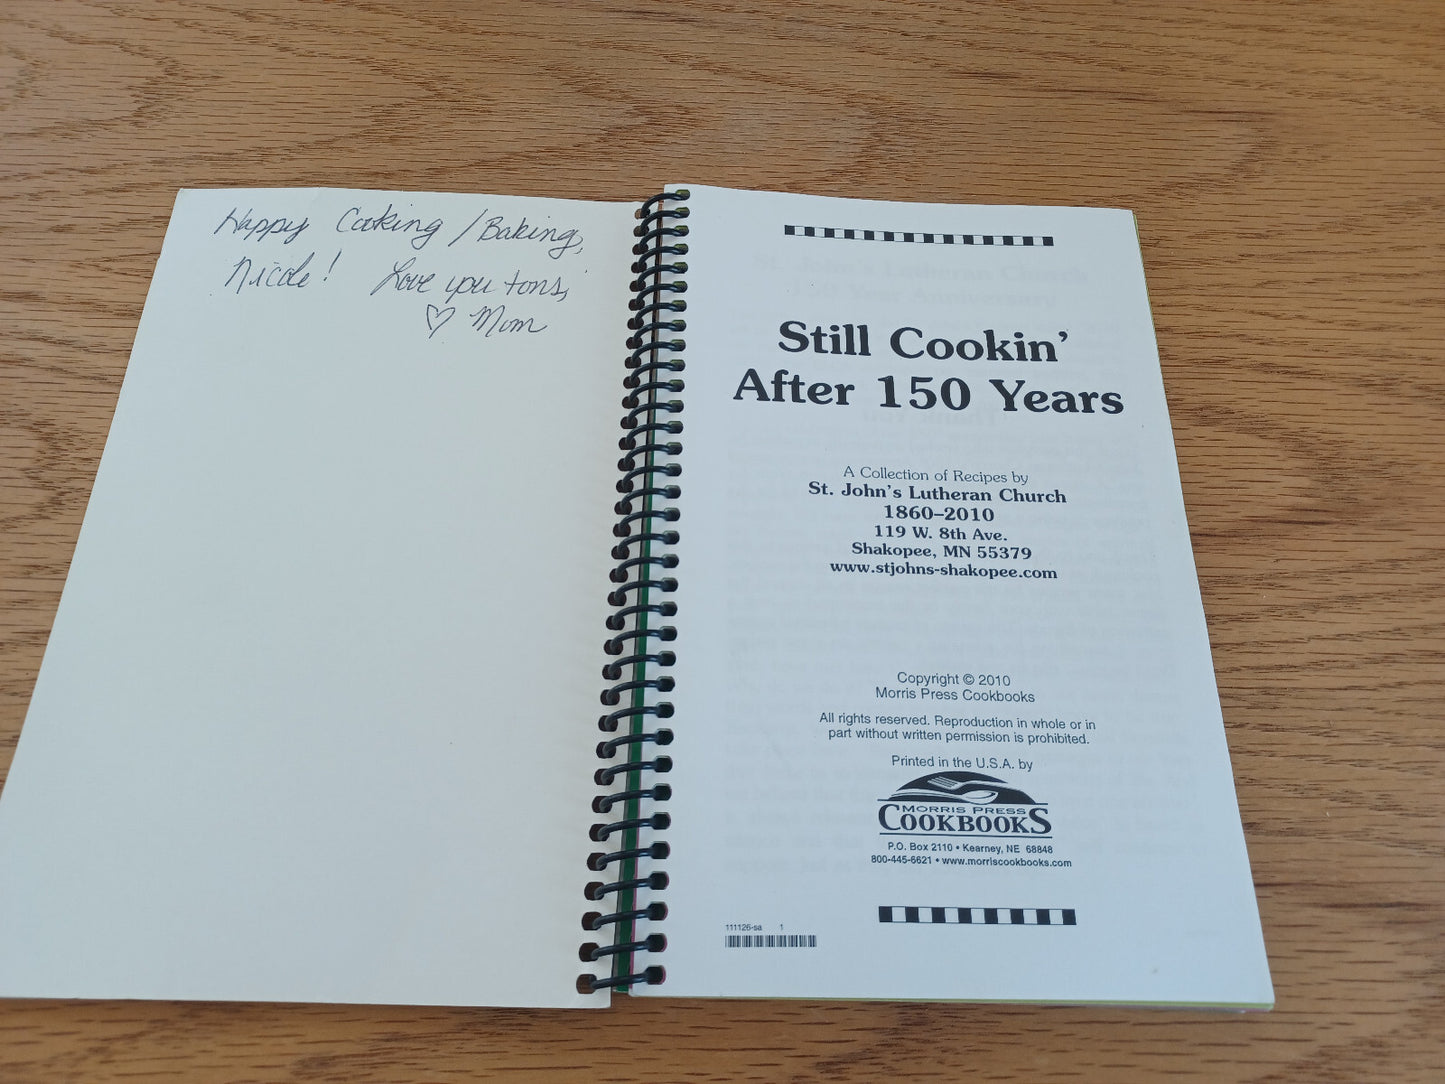 Happy Cooking / Baking,
Nicole! Love you tons,
♡ Mom
Still Cookin'
After 150 Years
A Collection of Recipes by
St. John's Lutheran Church
1860–2010
119 W. 8th Ave.
Shakopee, MN 55379
www.stjohns-shakopee.com
Copyright © 2010
Morris Press Cookbooks
All rights reserved. Reproduction in whole or in
part without written permission is prohibited.
Printed in the U.S.A. by
MORRIS PRESS
COOKBOOKS
P.O. Box 2110 • Kearney, NE 68848
800-445-6621 • www.morriscookbooks.com
111126-sa 1